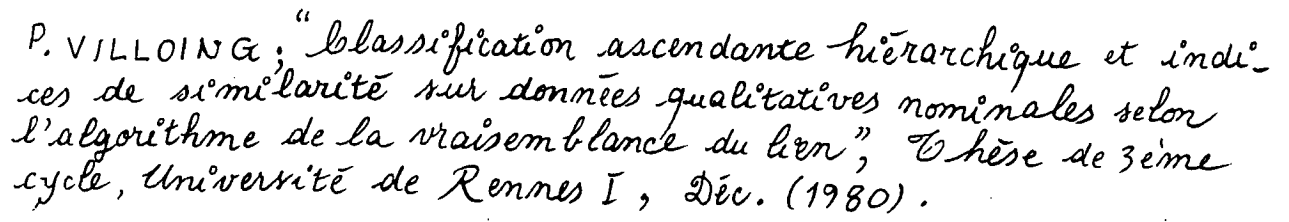 P. VILLOING ; "Classification ascendante hiérarchique et indi-
ces de similarité sur données qualitatives nominales selon
l'algorithme de la vraisemblance du lien", Thèse de 3ème
cycle, Université de Rennes I, Déc. (1980).